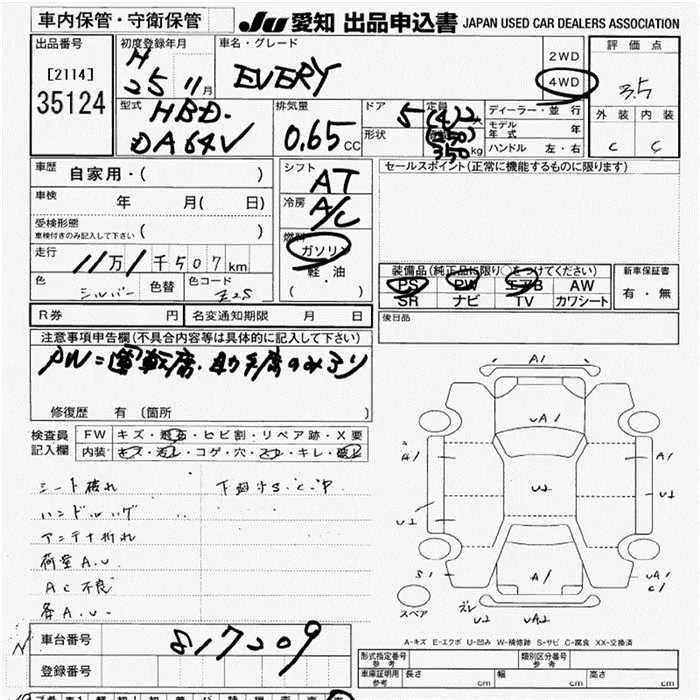 車内保管・守衛保管
Ju 愛知 出品申込書 JAPAN USED CAR DEALERS ASSOCIATION
出品番号
[2114]
35124
初度登録年月
H
25 11月
車名・グレード
EVERY
2WD
4WD
評価点
3.5
外装 内装
C C
型式
HBD-
DA64V
排気量
0.65 CC
ドア
5
形状
定員
(4)2人
(250)
350 kg
ディーラー・並行
モデル年式 年
ハンドル 左・右
車歴
自家用・( )
車検
年 月( 日)
受検形態
車検付きのみ記入して下さい
走行
11万1千507km
色
シルバー
色替
色コード
Z2S
シフト
AT
冷房
A/C
燃料
ガソリン
軽・油
( ・ )
セールスポイント(正常に機能するものに限ります)
装備品(純正品に限り○をつけてください)
PS PW エアB AW
SR ナビ TV カワシート
新車保証書
有・無
R券 円
名変通知期限 月 日
後日品
注意事項申告欄(不具合内容等は具体的に記入して下さい)
PW=運転席、助手席のみあり
修復歴 有(箇所 )
検査員記入欄
FW キズ・飛石・ヒビ割・リペア跡・X要
内装 キズ・汚れ・コゲ・穴・スレ・キレ・破れ
シート破れ
下廻りS.C.中
ハンドルハゲ
アンテナ折れ
荷室A.U
AC不良
各A.U.
A1
UA1
A1
A1
U2
U2
U2
S1
A1
UA1
C1
スペア
ズレ
U2
UA2
A-キズ E-エクボ U-凹み W-補修跡 S-サビ C-腐食 XX-交換済
車台番号
817209
登録番号
形式指定番号
参考
類別区分番号
参考
車庫証明用
参考
長さ cm
幅 cm
高さ cm